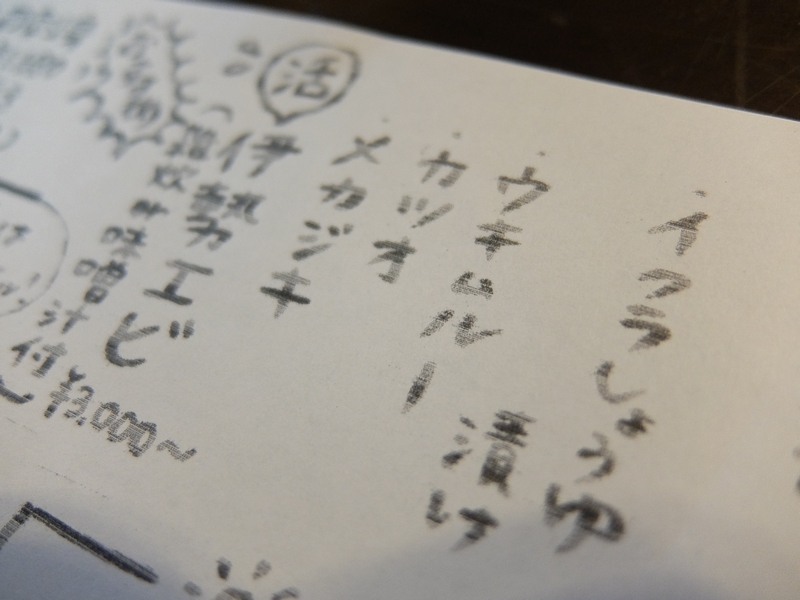 ・イクラしょうゆ
漬け
・ウキムルー
・カツオ
・メカジキ
活
伊勢エビ
(雑炊 味噌汁付)
¥3,000~